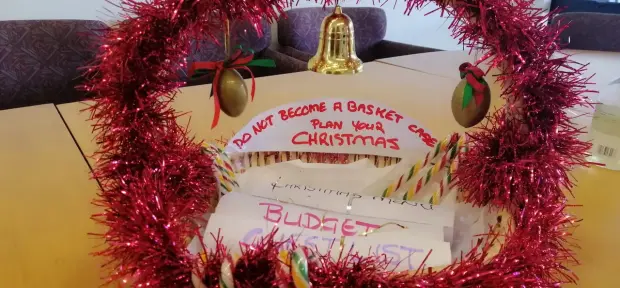 DO NOT BECOME A BASKET CASE
PLAN YOUR
CHRISTMAS
CHRISTMAS MENU
BUDGET
GUEST LIST